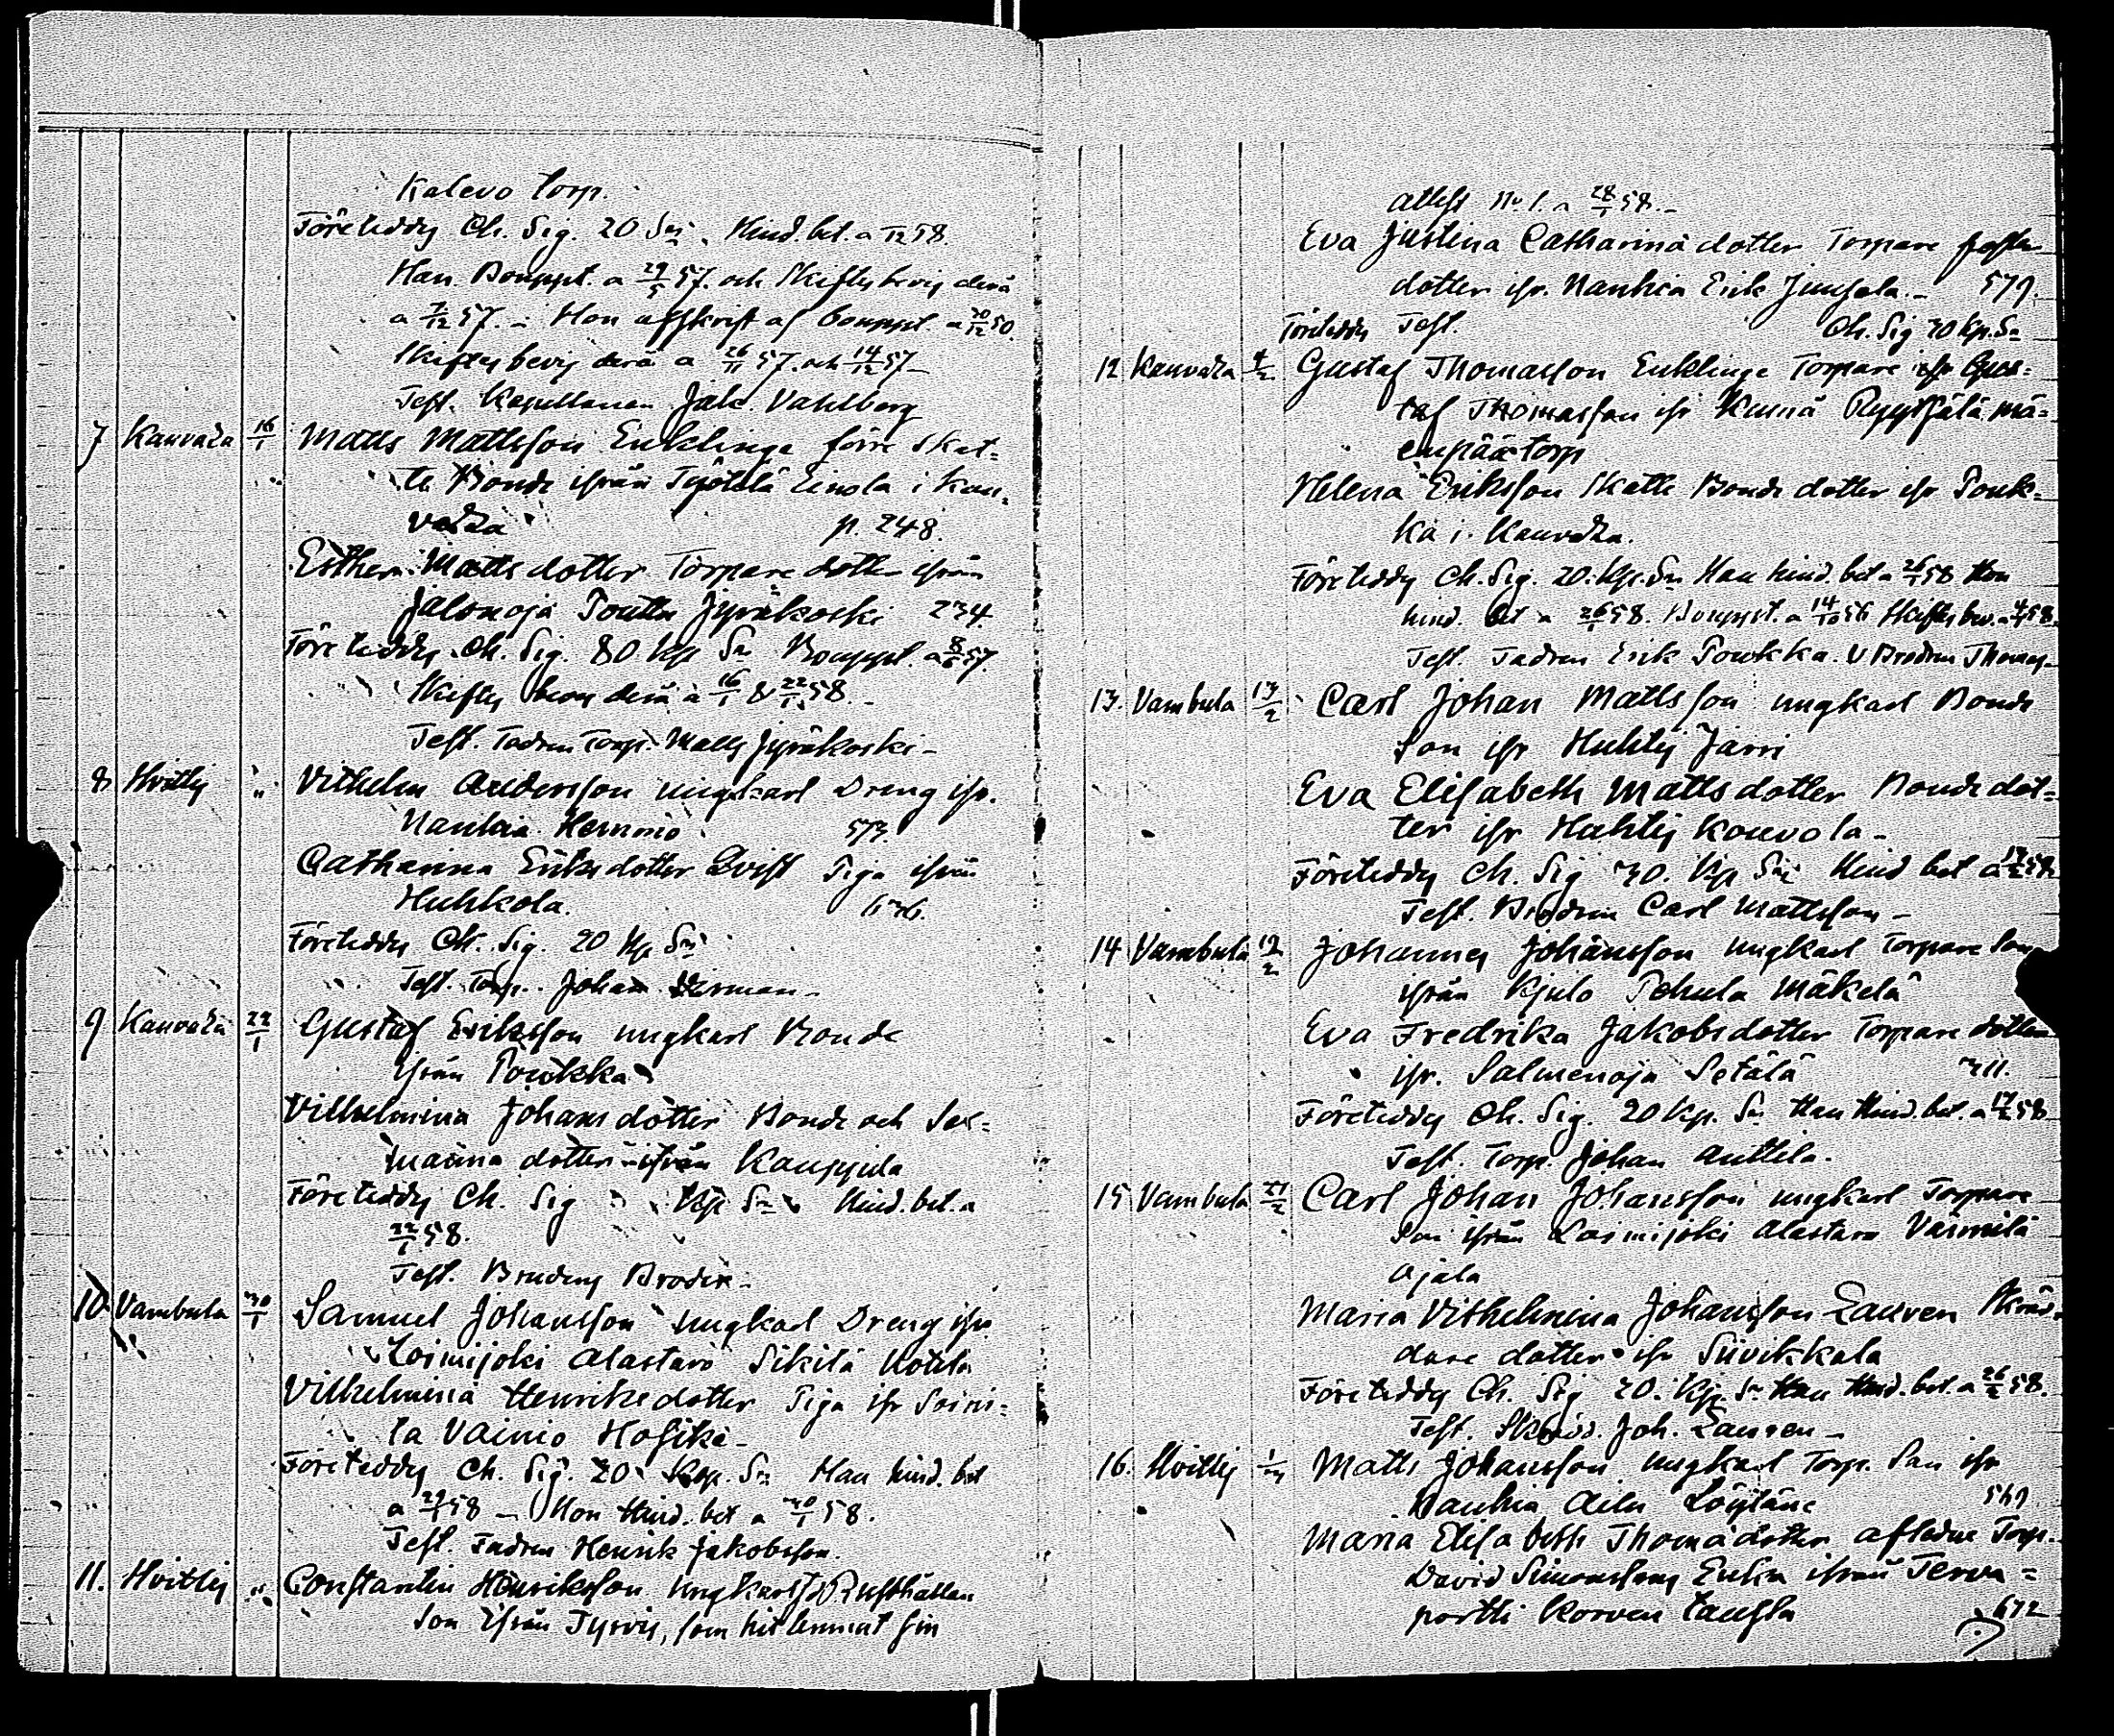 Kalevo torp.
Företeddes Ch. Sig. 20 Sr. Hind. bet. a 12 58.
Han Bouppt. a 29/5 57. och Skiftes bevis derå
a 7/12 57. - Hon afskrift af bouppt. a 30/12 50.
Skiftes bevis derå a 26/11 57. och 14/12 57 -
Test. Kapellanen Jak. Vahlberg
7 Kauvatsa 16/1 Matts Mattsson Enklinge förre Skat=
te Bonde ifrån Työtölä Einola i Kau=
vatsa p. 248.
Esther Matts dotter Torpare dotter ifrån
Jalonoja Toutta Jyräkoski 234.
Företeddes Ch. Sig. 80 Kp. Sr Bouppt. a 8/6 57.
Skiftes bevis derå a 16/1 & 22/1 58. -
Test. Fadren Torp. Matts Jyräkoski -
8 Hvittis " Vilhelm Andersson ungkarl Dreng ifr.
Naukia Hemmo 573.
Catharina Eriks dotter Qvist Piga ifrån
Huhkola. 636.
Företeddes Ch. Sig. 20 Kp Sr
Test. Torp. Johan
9 Kauvatsa 22/1 Gustaf Eriksson ungkarl Bonde
ifrån Poukka
Vilhelmina Johans dotter Bonde och Sex=
manna dotter ifrån Kauppila
Företeddes Ch. Sig Kp. Sr Hind. bet. a
22/1 58.
Test. Brudens Broder -
10 Vambula 30/1 Samuel Johansson ungkarl Dreng ifr.
Loimijoki Alastaro Sikilä Kotila
Vilhelmina Henriks dotter Piga ifr Soini=
la Vainio Hosike -
Företeddes Ch. Sig. 20 Kop. Sr Han hind. bet
a 29/1 58 - Hon Hind. bet a 30/1 58.
Test. Fadren Henrik Jakobsson.
11. Hvittis " Constantin Henriksson Ungkarl Rusthållare
Son ifrån Tyrvis, som hit lemnat sin
attest No 1. a 28/1 58. -
Eva Justina Catharina dotter Torpare foster
dotter ifr. Naukia Erik Junsala. - 579.
Företeddes Test. Ch. Sig 30 Kp. Sr
12 Kauvatsa 4/2 Gustaf Thomasson Enklinge Torpare ifr Gus=
taf Thomasson ifr Kumå Ryysjälä mä=
enpää torp
Helena Eriksson Skatte Bonde dotter ifr Pouk=
ka i Kauvatsa.
Företeddes Ch. Sig. 20. Kp. Sr Han hind. bet a 26/1 58 Hon
hind. bet a 26/1 58. Bouppt. a 14/10 56 Skiftes bev. a 4/1 58.
Test. Fadren Erik Poukka. & Brodren Thomas -
13. Vambula 13/2 Carl Johan Mattsson ungkarl Bonde
Son ifr Huhtis Jarri
Eva Elisabeth Matts dotter Bonde dot=
ter ifr Huhtis Kouvola -
Företeddes Ch. Sig 30. Kp Sr Hind bet a 13/2 58.
Test. Brodren Carl Mattsson -
14 Vambula 19/2 Johannes Johansson ungkarl Torpare Son
ifrån Kjulo Pehula Mäkelä
Eva Fredrika Jakobs dotter Torpare dotter
ifr. Salmenoja Setälä 311.
Företeddes Ch. Sig. 20 Kp. Sr Han Hind. bet. a 19/2 58
Test. Torp. Johan Anttila.
15 Vambula 27/2 Carl Johan Johansson ungkarl Torpare
Son ifrån Loimijoki Alastaro Vännilä
Ojala
Maria Vilhelmina Johansson Lauren Skräd=
dare dotter ifr Siivikkala
Företeddes Ch. Sig 20. Kp. Sr Han Hind. bet. a 26/2 58.
Test. Skrädd. Joh. Lauren -
16. Hvittis Matts Johansson ungkarl Torp. Son ifr
Naukia Aila Löytäne 569
Maria Elisabeth Thoma dotter aflidne Torp.
David Simonssons Enka ifrån Terva=
portti Korven tausta 672